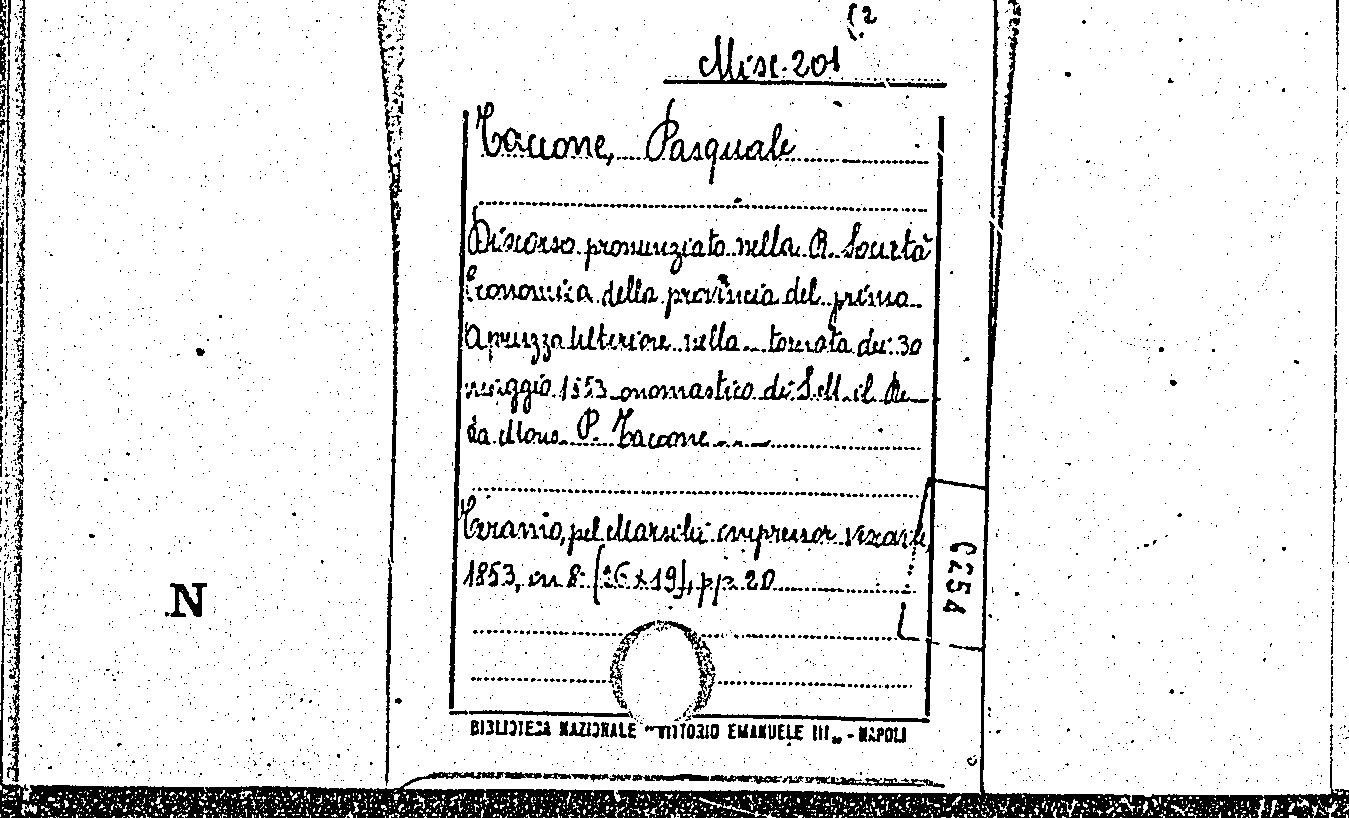 (2
Misc. 201
Taccone, Pasquale
Discorso pronunziato nella R. Società
Economica della provincia del primo
Apruzzo Ulteriore nella tornata de' 30
maggio 1853 onomastico di S. M. il Re
da Mons. P. Taccone
Teramo, pel Marsilii impressor
1853, in 8° (26 x 19), pp. 20
N
BIBLIOTECA NAZIONALE "VITTORIO EMANUELE III" - NAPOLI